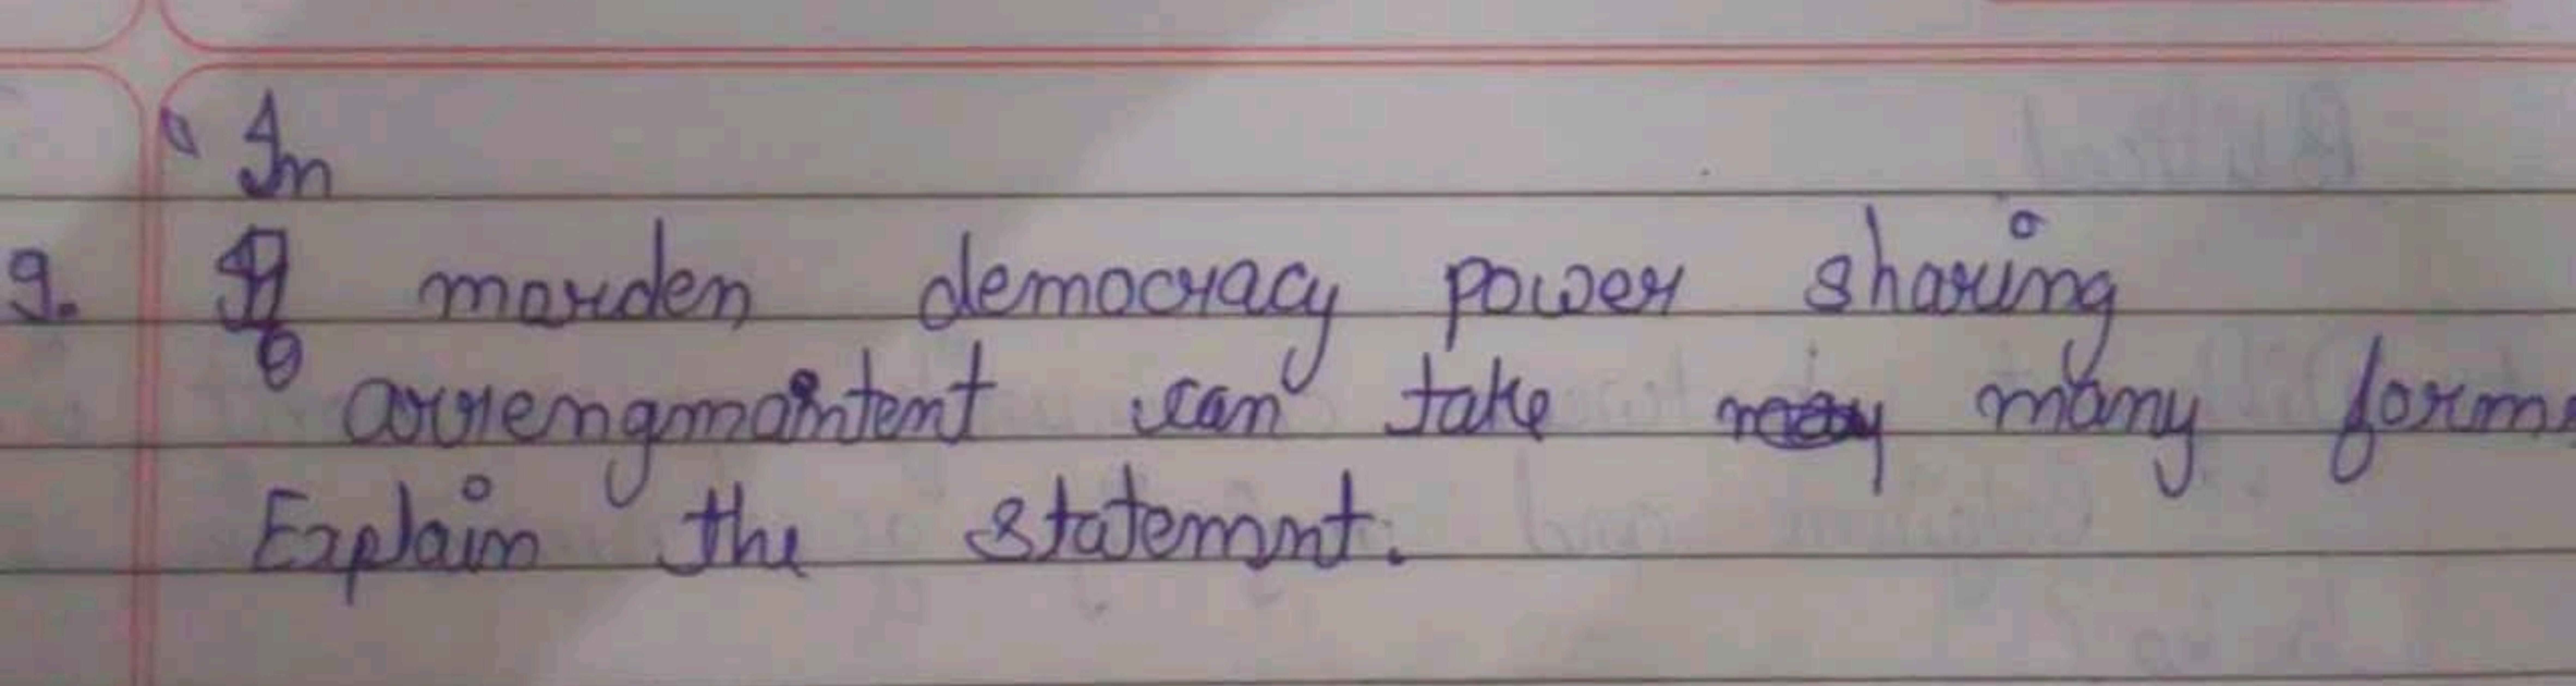 In
9. marden democracy power sharing
arriengmaintent can take many forms
Explain the statemnt.